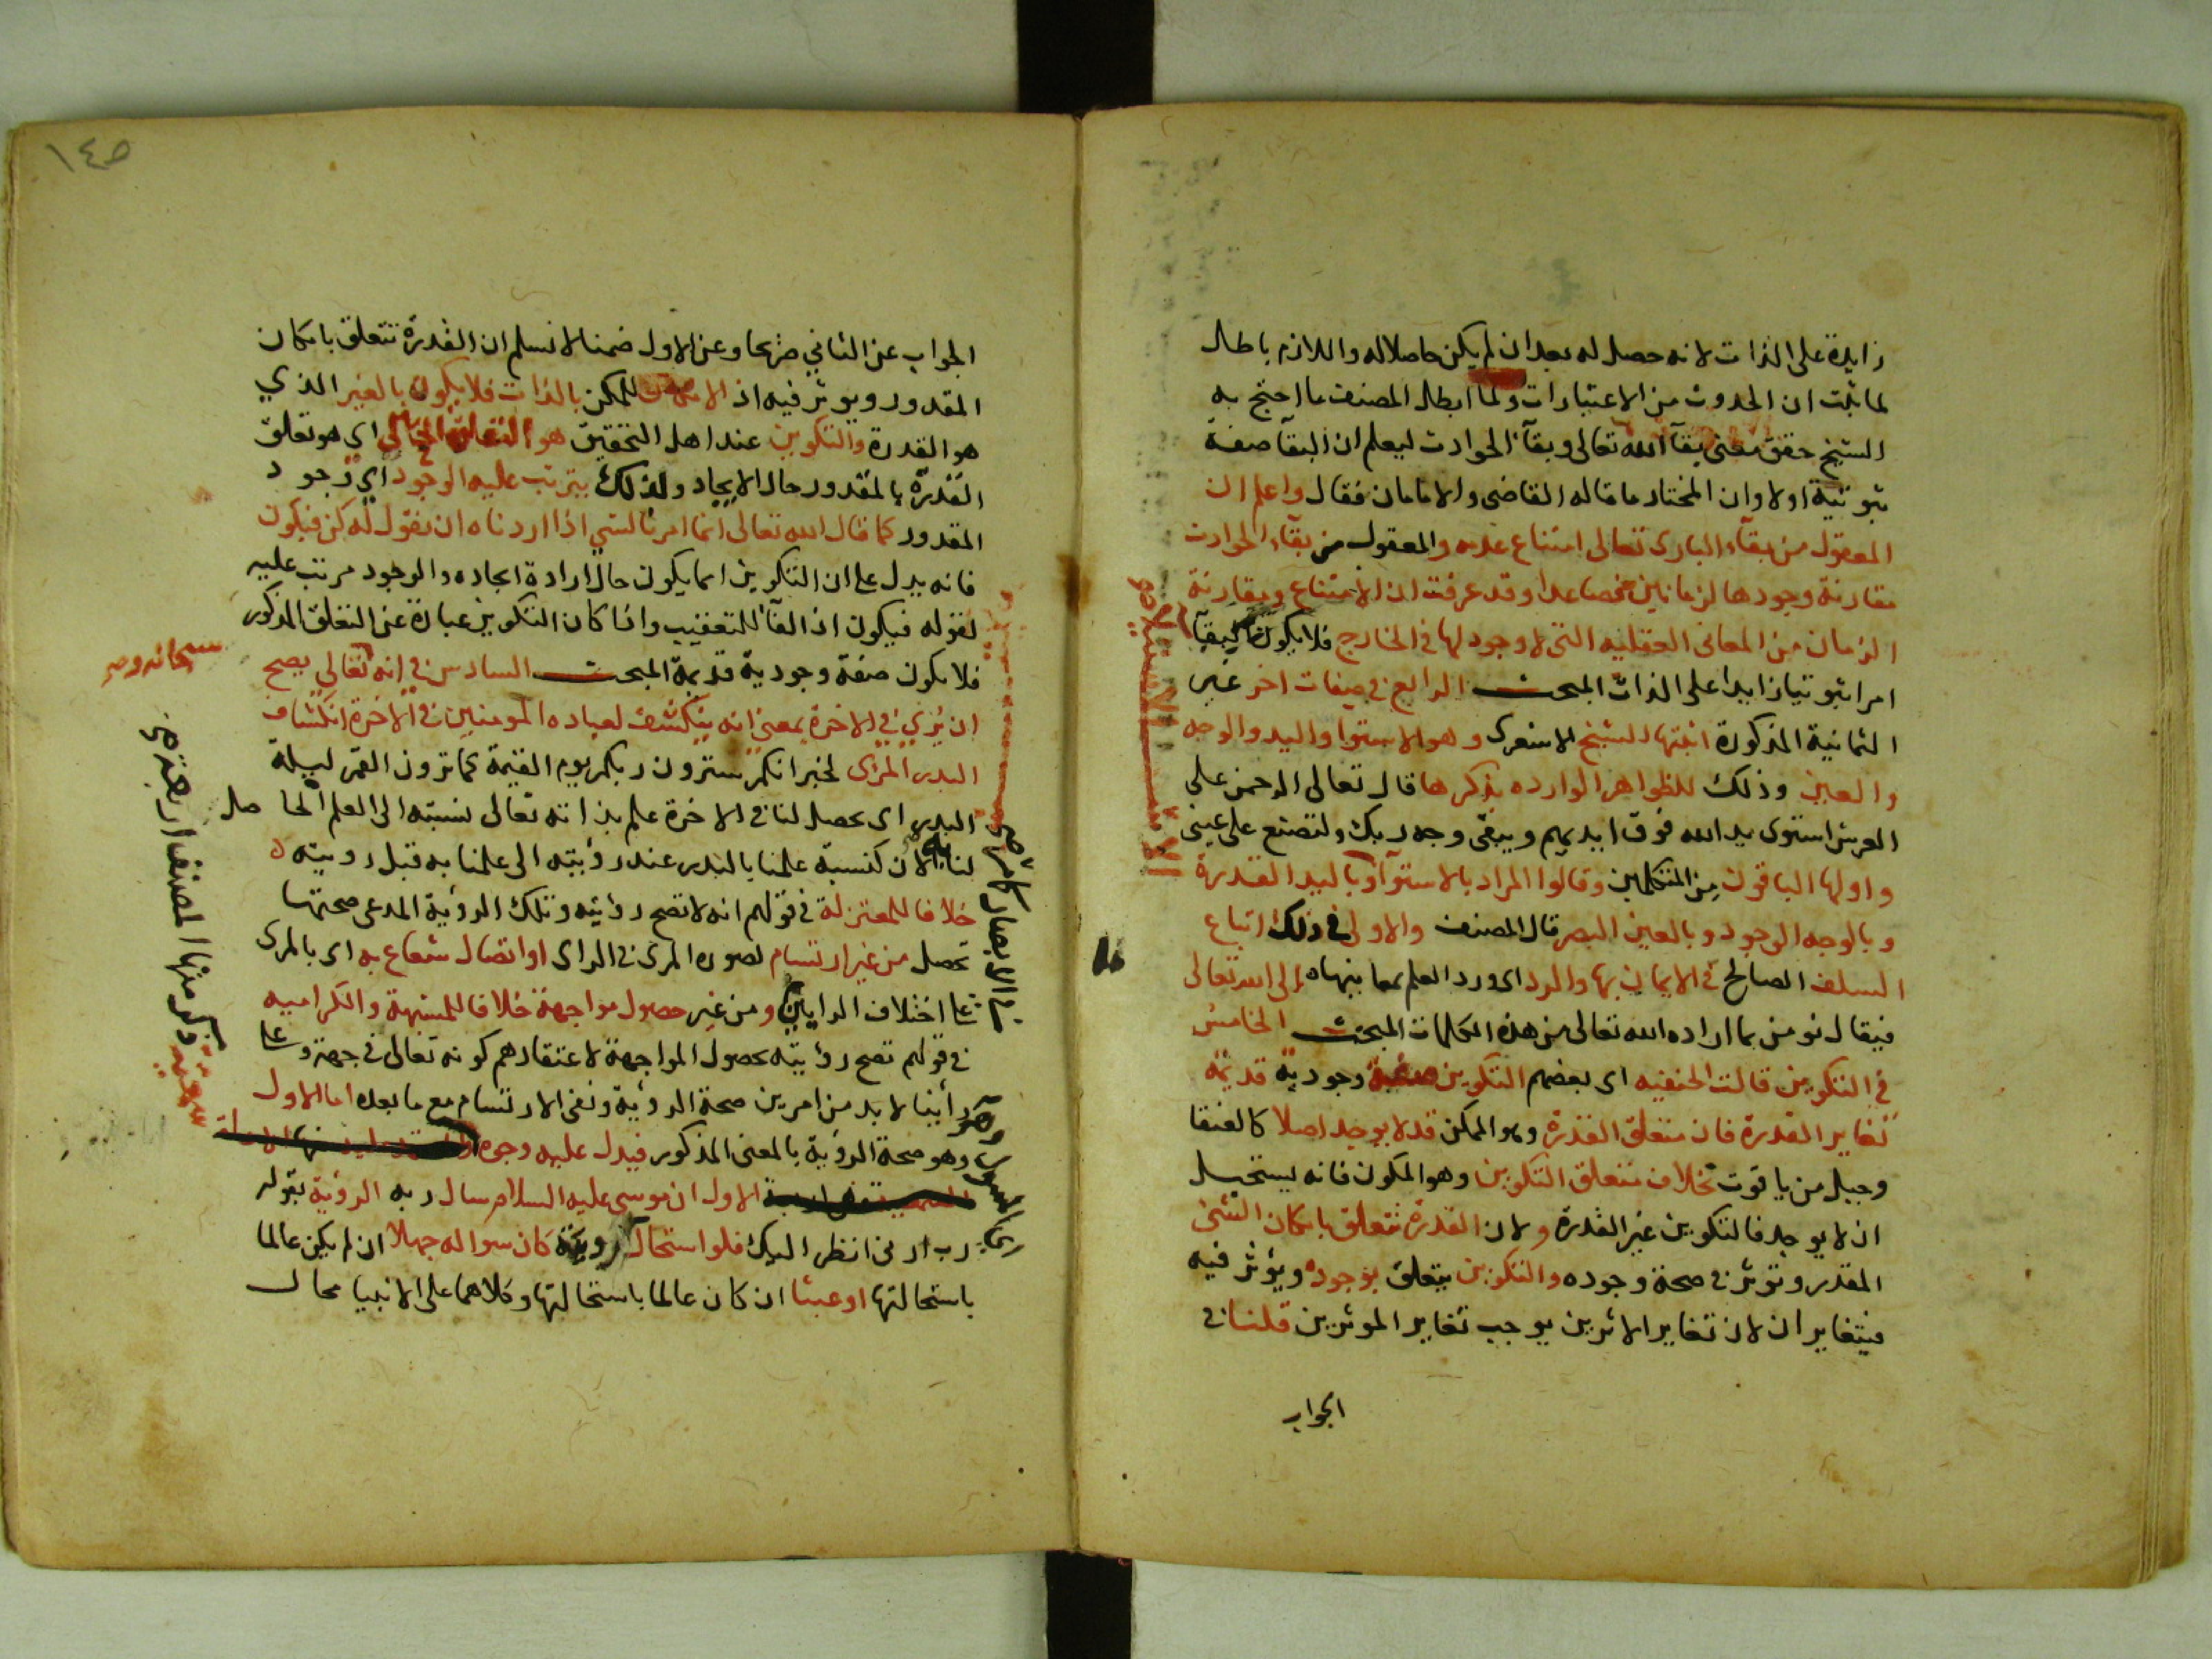 زايدة على الذات لانه حصل له بعد ان لم يكن حاصلا له واللازم باطل
لما ثبت ان الحدوث من الاعتبارات ولما ابطل المصنف ما احتج به
الشيخ حقق معنى بقآ الله تعالى وبقآ الحوادث ليعلم ان البقآ صفة
ثبوتية اولا وان المختار ما قاله القاضى والامامان فقال واعلم ان
المعقول من بقآء البارى تعالى امتناع عدمه والمعقول من بقآء الحوادث
مقارنة وجودها لزمانين فصاعدا وقد عرفت ان الامتناع ومقارنة
الزمان من المعانى العقليه التى لا وجود لها فى الخارج فلا يكون البقآ
امرا ثبوتيا زايدا على الذات المبحث الرابع فى صفات اخر غير
الثمانية المذكورة اثبتها الشيخ الاشعرى وهو الاستوا واليد والوجه
والعين وذلك للظواهر الوارده بذكرها قال تعالى الرحمن على
العرش استوى يد الله فوق ايديهم ويبقى وجه ربك ولتصنع على عينى
واولها الباقون من المتكلمين وقالوا المراد بالاستوآ وباليد القدرة
وبالوجه الوجود وبالعين البصر قال المصنف والاولى فى ذلك اتباع
السلف الصالح فى الايمان بها والرد اى ورد العلم بمعانيها الى الله تعالى
فيقال نومن بما اراده الله تعالى من هذه الكلمات المبحث الخامس
فى التكوين قالت الحنفيه اى بعضهم التكوين صفة وجودية قديمة
تغاير القدرة فان متعلق القدرة وهو الممكن قد لا يوجد اصلا كالعنقا
وجبل من ياقوت بخلاف متعلق التكوين وهو المكون فانه يستحيل
ان لا يوجد فالتكوين غير القدرة ولان القدرة تتعلق بامكان الشئ
المقدر وتوثر فى صحة وجوده والتكوين يتعلق بوجوده ويؤثر فيه
فيتغايران لان تغاير الاثرين يوجب تغاير الموثرين قلنا فى
الجواب
الاستيلاء
١٤٥
الجواب عن الثاني صريحا وعن الاول ضمنا لا نسلم ان القدرة تتعلق بامكان
المقدور ويوثر فيه اذ الامكان للممكن بالذات فلا يكون بالغير الذي
هو القدرة والتكوين عند اهل التحقيق هو التعلق الحالي اى هو تعلق
القدرة بالمقدور حال الايجاد ولذلك يترتب عليه الوجود اى وجود
المقدور كما قال الله تعالى انما امرنا لشي اذا اردناه ان نقول له كن فيكون
فانه يدل على ان التكوين انما يكون حال ارادة ايجاده والوجود مرتب عليه
لقوله فيكون اذ الفآ للتعقيب واذا كان التكوين عبارة عن التعلق المذكور
فلا يكون صفة وجودية قديمة المبحث السادس في انه تعالى يصح
ان يُرَي في الاخرة بمعنى انه ينكشف لعباده المومنين في الاخرة انكشاف
البدر المرئى لخبر انكم سترون ربكم يوم القيمة كما ترون القمر ليلة
البدر اى يحصل لنا فى الاخرة علم بذاته تعالى نسبته الى العلم الحاصل
لنا به الآن كنسبة علمنا بالبدر عند رؤيته الى علمنا به قبل رويته
خلافا للمعتزلة فى قولهم انه لا تصح رؤيته وتلك الرؤية المدعى صحتها
تحصل من غير ارتسام لصوره المرئ فى الراى او اتصال شعاع به اى بالمرى
على اختلاف الرايين ومن غير حصول مواجهة خلافا للمشبهة والكراميه
فى قولهم تصح رؤيته بحصول المواجهة لاعتقادهم كونه تعالى فى جهة وعلى
رأينا لابد من امرين صحة الرؤية ونفى الارتسام مع ما بعده اما الاول
وهو صحة الرؤية بالمعنى المذكور فيدل عليه وجوه
الاول ان موسى عليه السلام سال ربه الرؤية بقوله
رب ارنى انظر اليك فلو استحال رويته كان سواله جهلا ان لم يكن عالما
باستحالتها او عبثا ان كان عالما باستحالتها وكلاهما على الانبيا محال
ذكر منها المصنف اربعة
سمعية